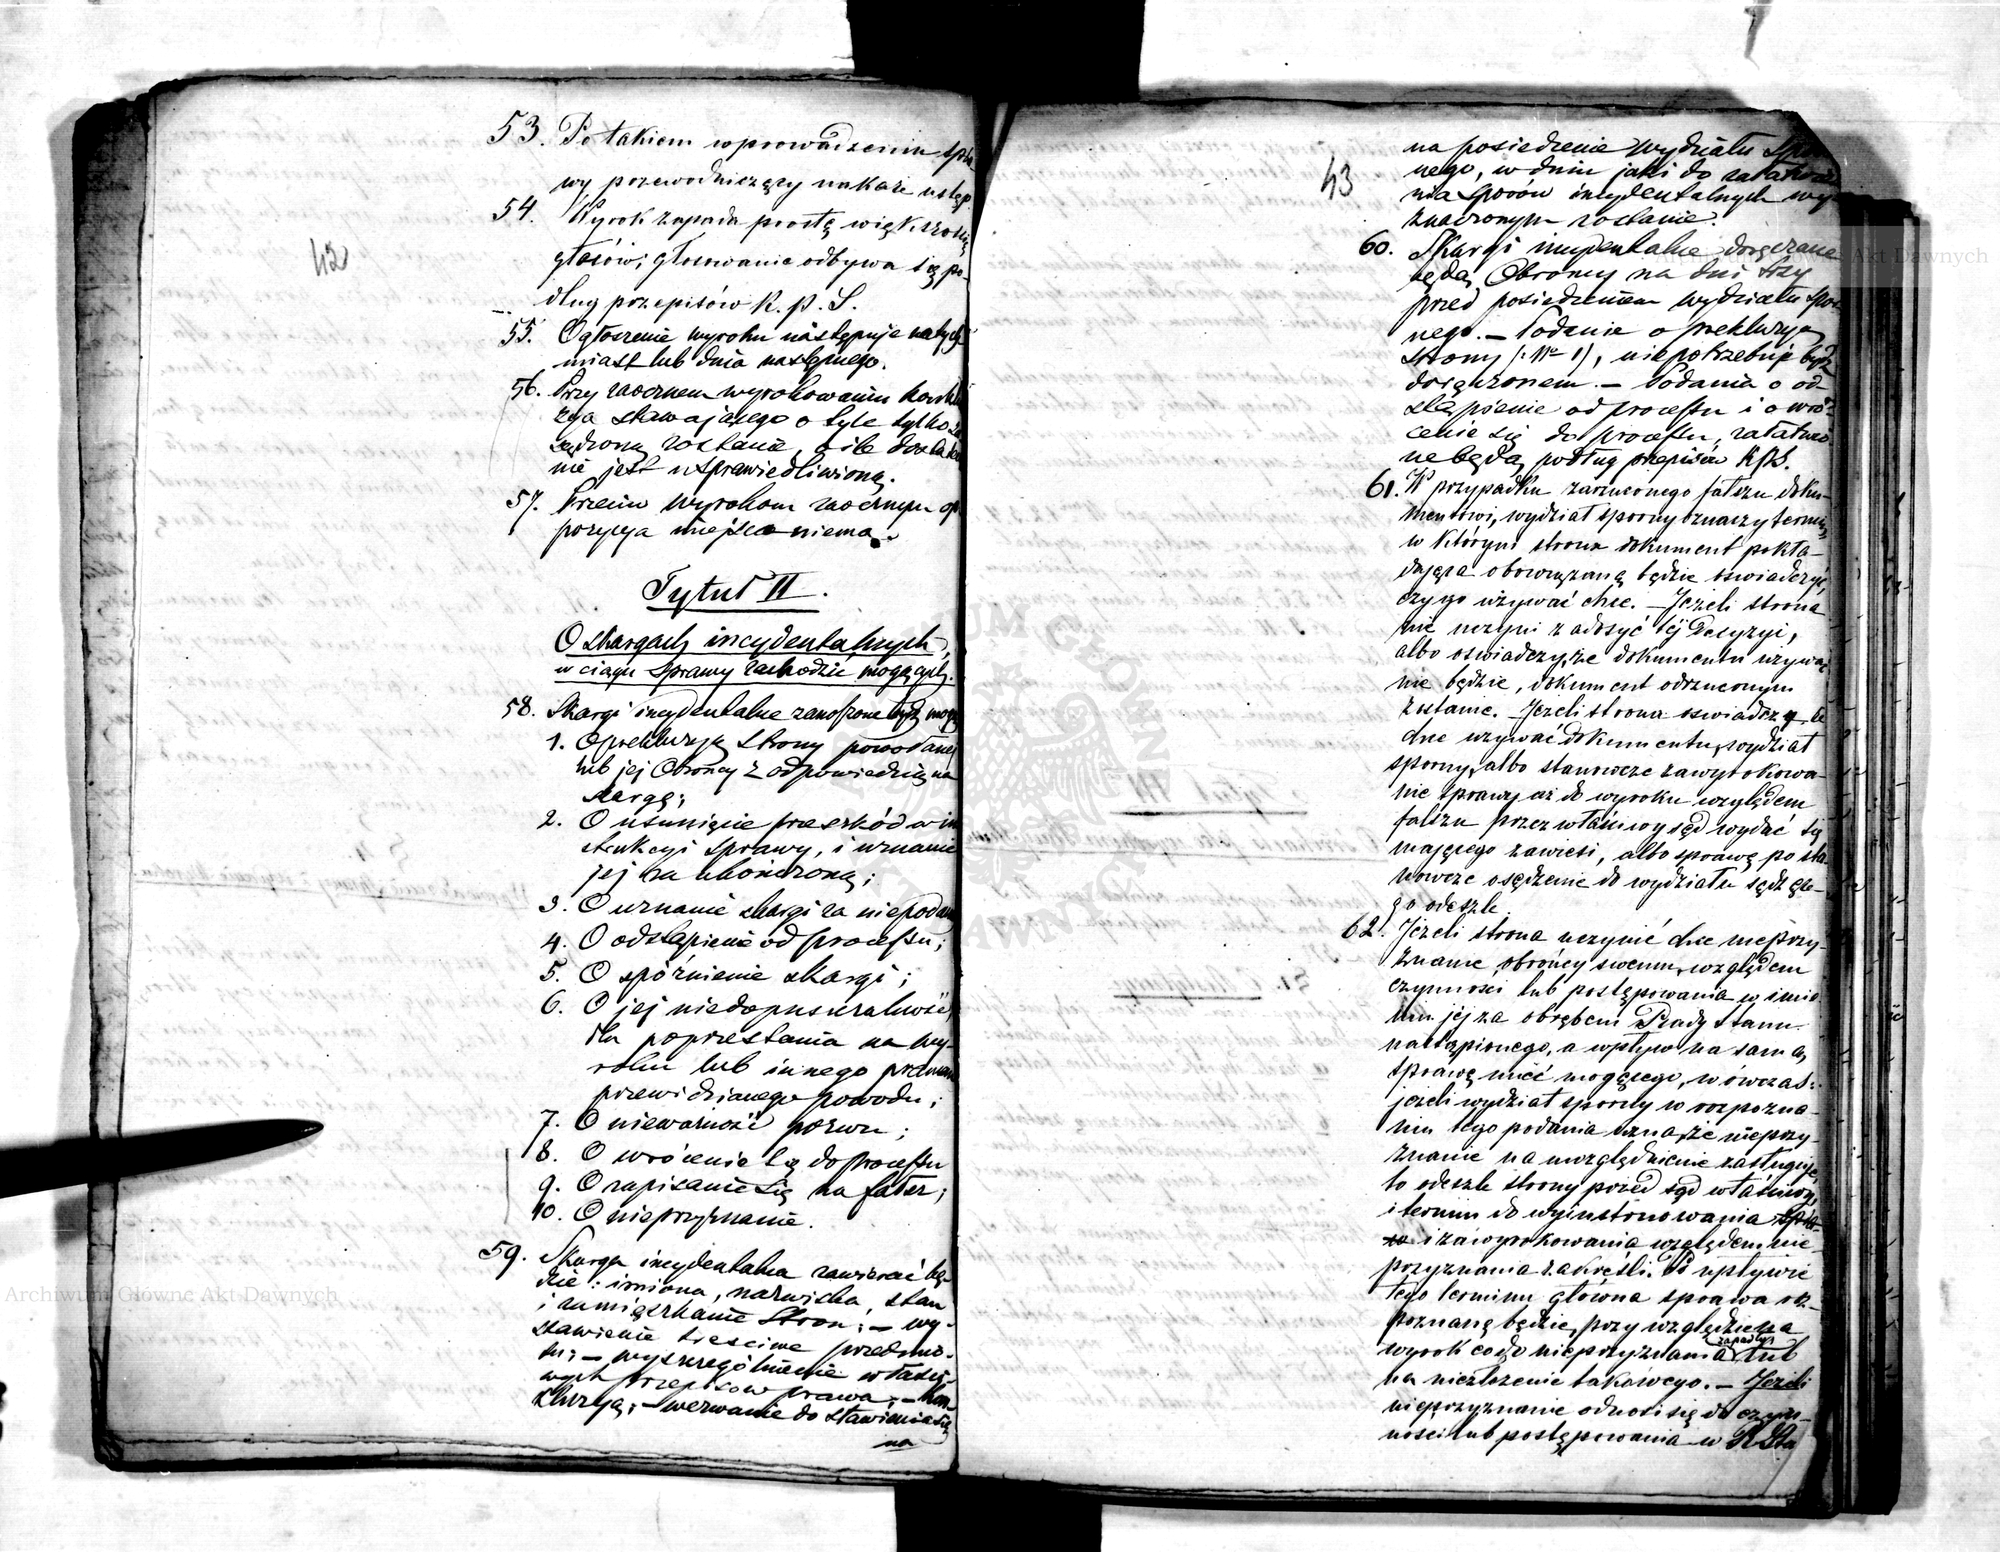 42
53. Po takiem wprowadzeniu spra
wy przewodniczący nakaże ustęp
54. Wyrok zapada prostą większością
głosów; głosowanie odbywa się po-
dług przepisów K. p. S.
55. Ogłoszenie wyroku następuje natych
miast lub dnia następnego.
56. Przy zaocznem wyrokowaniu
stawającego o tyle tylko
zostanie, o ile
nie jest usprawiedliwioną.
57. Przeciw wyrokom zaocznym op
pozycya miejsca niema.
Tytuł II.
O skargach incydentalnych,
w ciągu sprawy zachodzić mogących.
58. Skargi incydentalne zanoszone być mogą
1. O prekluzyą strony powodanej
lub jej Obrońcy z odpowiedzią na
skargę;
2. O usunięcie przeszkód w in
strukcyi sprawy, i uznanie
jej za ukończoną;
3. O uznanie skargi za niepodaną
4. O odstąpienie od processu;
5. O spóźnienie skargi;
6. O jej niedopuszczalność,
dla poprzestania na wy-
roku lub innego prawem
przewidzianego powodu;
7. O nieważność pozwu;
8. O wrócenie się do processu
9. O zapisanie się na fałsz;
10. O nieprzyznanie.
59. Skarga incydentalna zawierać bę-
dzie: imiona, nazwiska, stan
i zamięszkanie Stron; – wy-
stawienie treściwe przedmio-
tu; – wyszczególnienie właści-
wych przepisów prawa; – kon-
kluzyą; – wezwanie do stawienia się
na
43
na posiedzenie Wydziału Spor
nego, w dniu jaki do załatwie
nia sporów incydentalnych wy
znaczonym zostanie.
60. Skargi incydentalne doręczane
będą Obrońcy na dni trzy
przed posiedzeniem wydziału spor
nego. – Podanie o prekluzyą
strony (: Nº 1), niepotrzebuje być
doręczonem. – Podania o od-
stąpienie od processu i o wró-
cenie się do processu, załatwio
ne będą podług przepisów K.P.S.
61. W przypadku zarzuconego fałszu doku-
mentowi, wydział sporny oznaczy termin,
w którym strona dokument pokła-
dająca obowiązaną będzie oświadczyć,
czy go używać chce. – Jeżeli strona
nie uczyni zadosyć tej Decyzyi,
albo oświadczy, że dokumentu używać
nie będzie, dokument odrzuconym
zostanie. – Jeżeli strona oświadczy, że
chce używać dokumentu, wydział
sporny, albo stanowcze zawyrokowa-
nie sprawy aż do wyroku względem
fałszu przez właściwy sąd wydać się
mającego zawiesi, albo sprawę po sta
nowcze osądzenie do wydziału sądzące-
go odeszle.
62. Jeżeli strona uczynić chce nieprzy-
znanie obrońcy swemu, względem
czynności lub postępowania w imie
niu jej za obrębem Rady Stanu
nastąpionego, a wpływ na samą
sprawę mieć mogącego, wówczas:
jeżeli wydział sporny w rozpozna-
niu tego podania uzna, że nieprzy-
znanie na uwzględnienie zasługuje,
to odeszle strony przed sąd właściwy,
i termin do wyinstruowania
i zawyrokowania względem nie-
przyznania zakreśli. Po upływie
tego terminu główna sprawa roz-
poznaną będzie, przy względzie na
wyrok co do nieprzyznania zapadły, lub
na niezłożenie takowego. – Jeżeli
nieprzyznanie odnosi się do czyn-
ności lub postępowania w R. Sta
Archiwum Główne Akt Dawnych